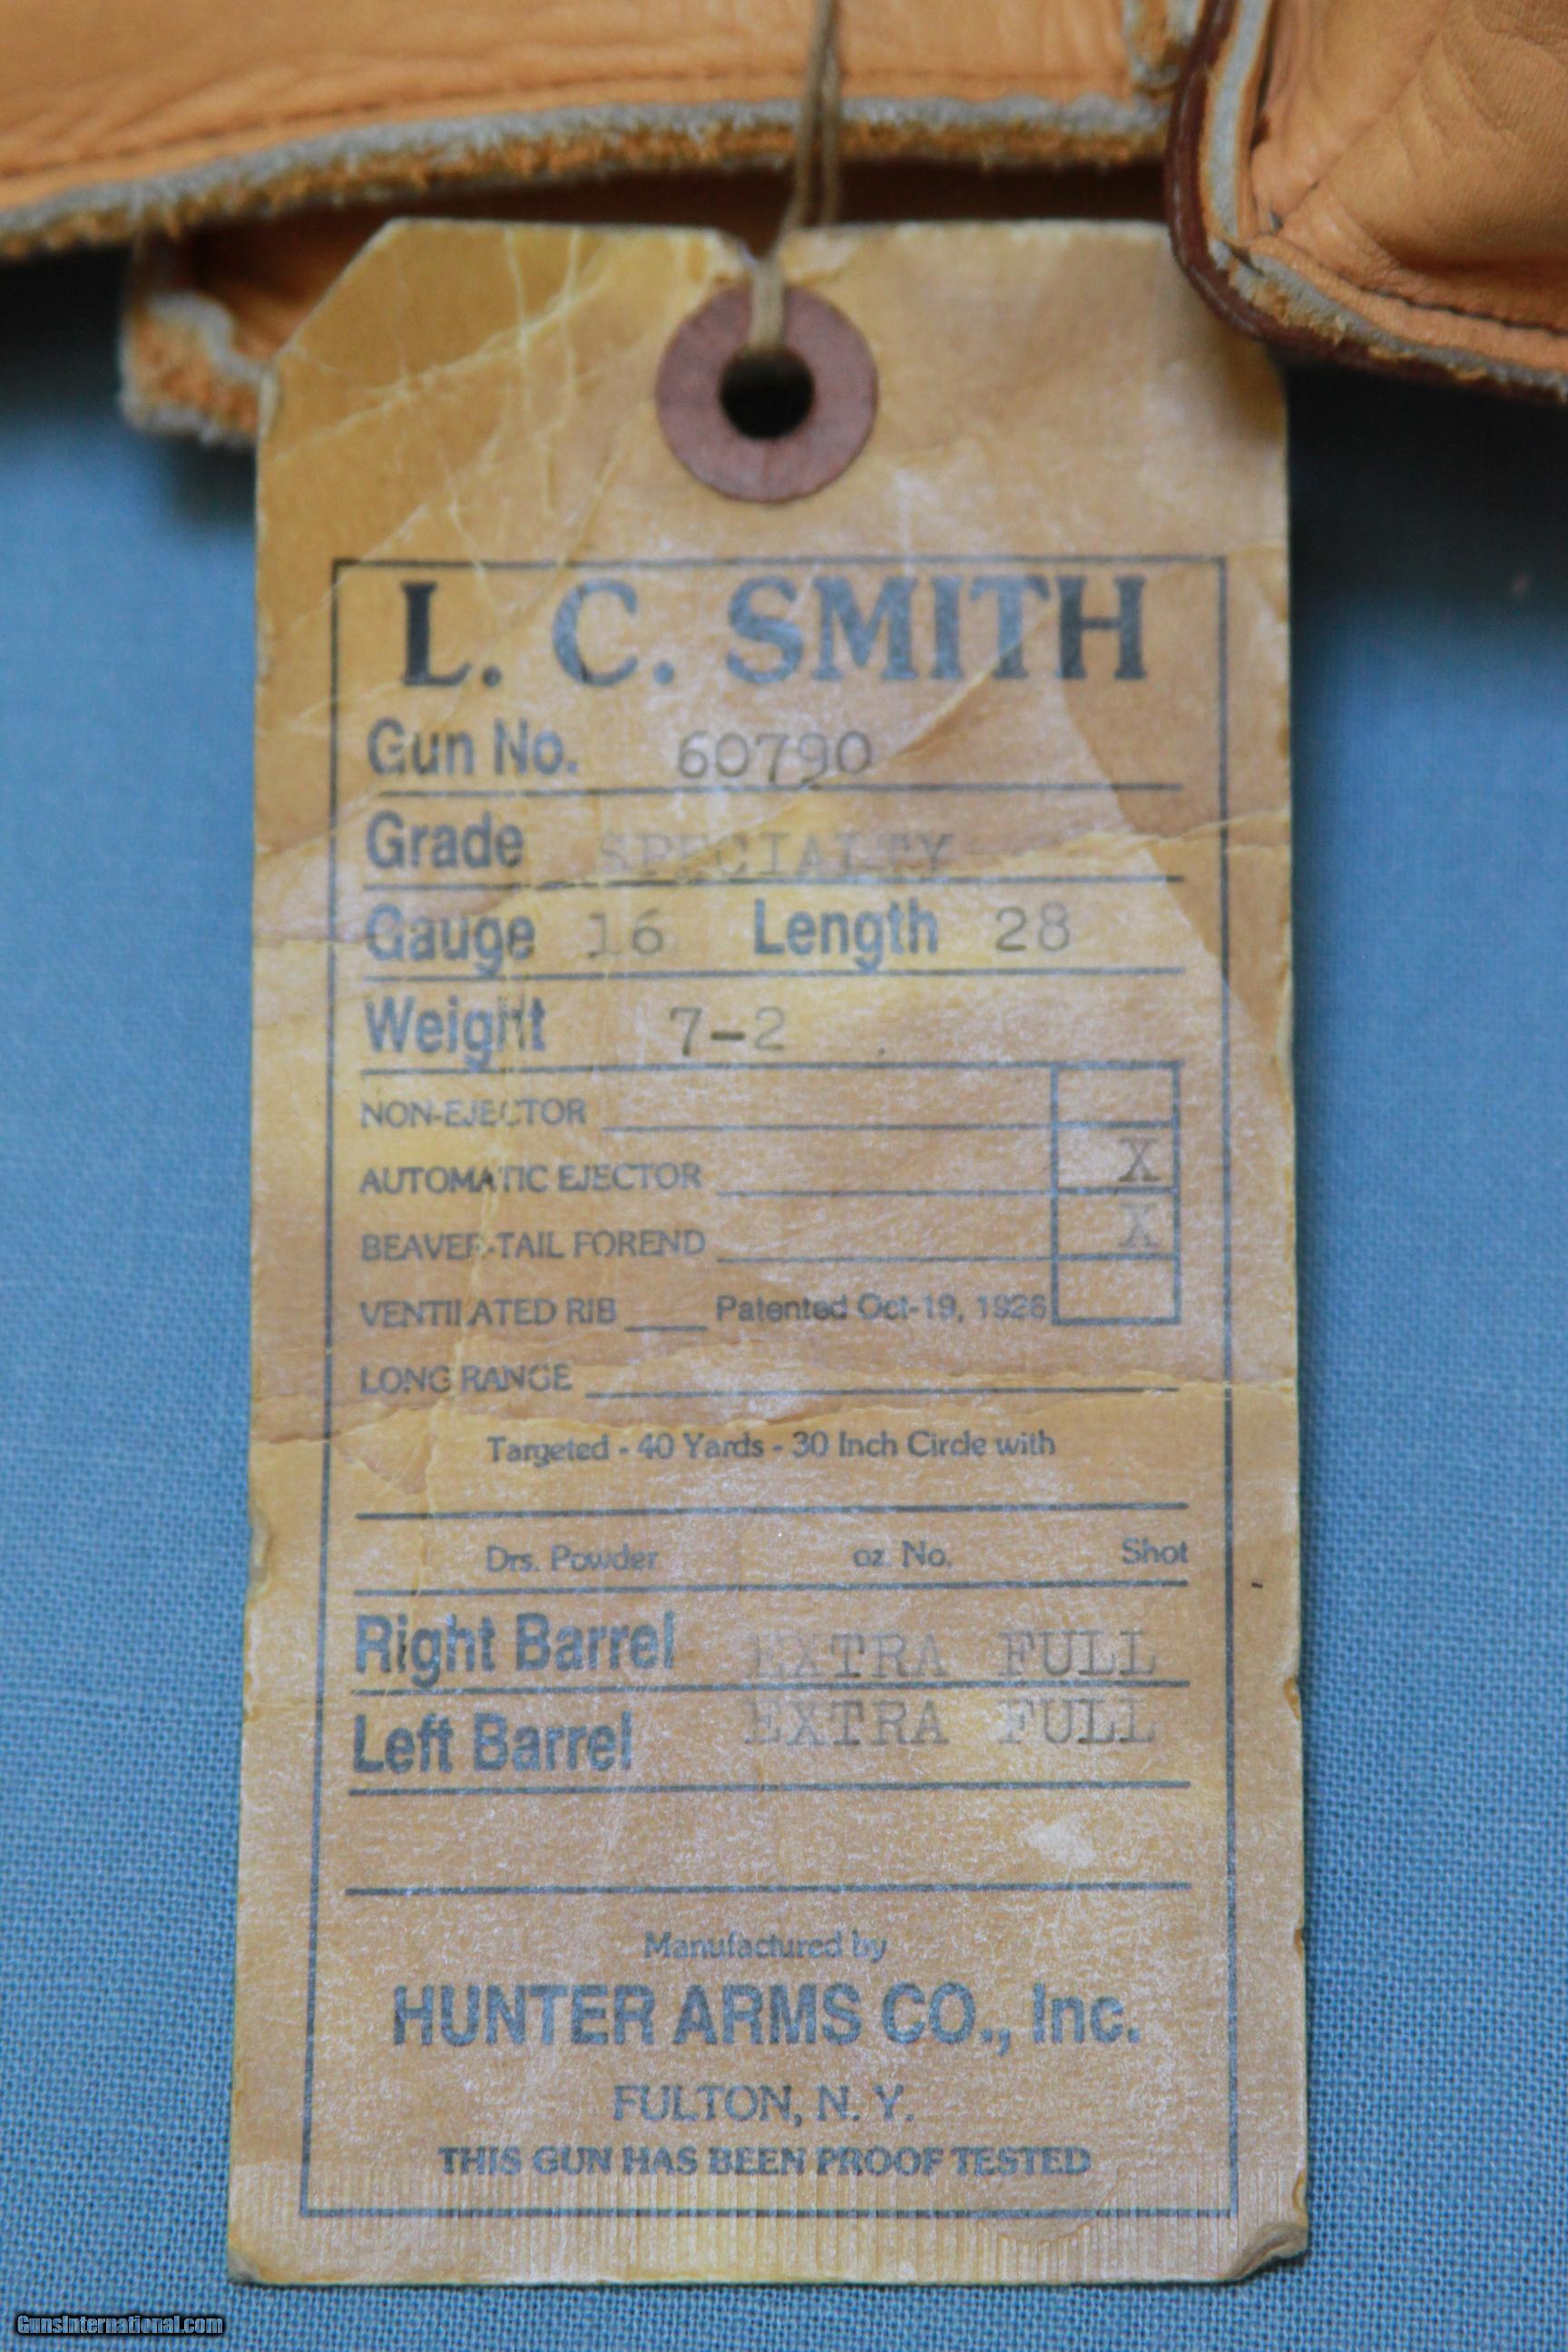 L. C. SMITH
Gun No. 60790
Grade SPECIALTY
Gauge 16 Length 28
Weight 7-2
NON-EJECTOR
AUTOMATIC EJECTOR X
BEAVER-TAIL FOREND X
VENTILATED RIB Patented Oct-19, 1926
LONG RANGE
Targeted - 40 Yards - 30 Inch Circle with
Drs. Powder oz. No. Shot
Right Barrel EXTRA FULL
Left Barrel EXTRA FULL
Manufactured by
HUNTER ARMS CO., Inc.
FULTON, N. Y.
THIS GUN HAS BEEN PROOF TESTED
GunsInternational.com